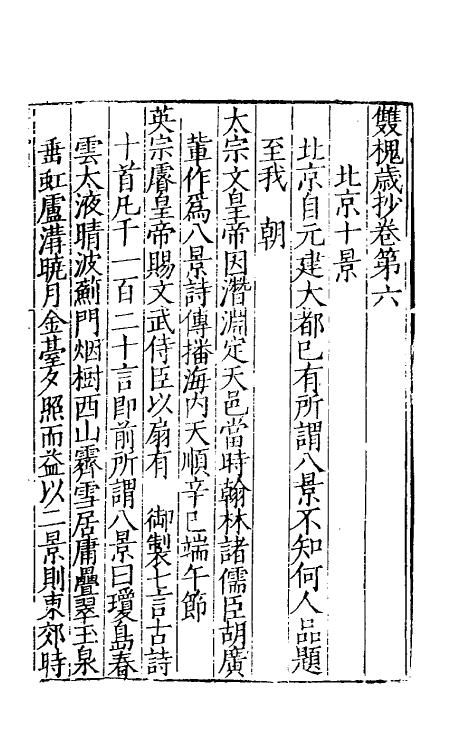 雙槐歲抄卷第六
北京十景
北京自元建大都已有所謂八景不知何人品題
至我　朝
太宗文皇帝因潛淵定天邑當時翰林諸儒臣胡廣
軰作爲八景詩傳播海内天順辛巳端午節
英宗睿皇帝賜文武侍臣以扇有　御製七言古詩
十首凡千一百二十言即前所謂八景曰瓊島春
雲太液晴波薊門烟樹西山霽雪居庸疊翠玉泉
垂虹盧溝曉月金臺夕照而益以二景則東郊時